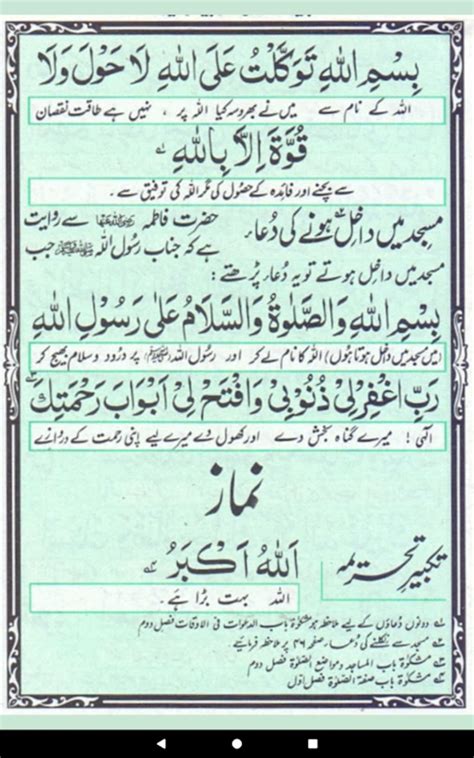 بِسْمِ اللهِ تَوَكَّلْتُ عَلَى اللهِ لَا حَوْلَ وَلَا
اللہ کے نام سے میں نے بھروسہ کیا اللہ پر ، نہیں ہے طاقت نقصان
قُوَّةَ اِلَّا بِاللهِ
سے بچنے اور فائدہ کے حصول کی مگر اللہ کی توفیق سے ۔
مسجد میں داخل ہونے کی دُعاء
حضرت فاطمہ رضی اللہ عنہا سے روایت
ہے کہ جناب رسول اللہ ﷺ جب
مسجد میں داخل ہوتے تو یہ دُعاء پڑھتے :
بِسْمِ اللهِ وَالصَّلٰوةُ وَالسَّلَامُ عَلٰى رَسُوْلِ اللهِ
(میں مسجد میں داخل ہوتا ہوں) اللہ کا نام لے کر اور رسول اللہ (ﷺ) پر درُود و سلام بھیج کر
رَبِّ اغْفِرْ لِىْ ذُنُوْبِىْ وَافْتَحْ لِىْ اَبْوَابَ رَحْمَتِكَ
الٰہی ! میرے گناہ بخش دے اور کھول دے میرے لیے اپنی رحمت کے دروازے
نماز
تکبیرِ تحریمہ
اَللهُ اَكْبَرُ
اللہ بہت بڑا ہے ۔
دونوں دُعاؤں کے لیے ملاحظہ ہو مشکوٰۃ باب الدعوات فی الاوقات فصل دوم
مسجد سے نکلنے کی دُعاء صفحہ ۴۶ پر ملاحظہ فرمائیے ۔
مشکوٰۃ باب المساجد و مواضع الصلوٰۃ فصل دوم
مشکوٰۃ باب صفۃ الصلوٰۃ فصل اوّل